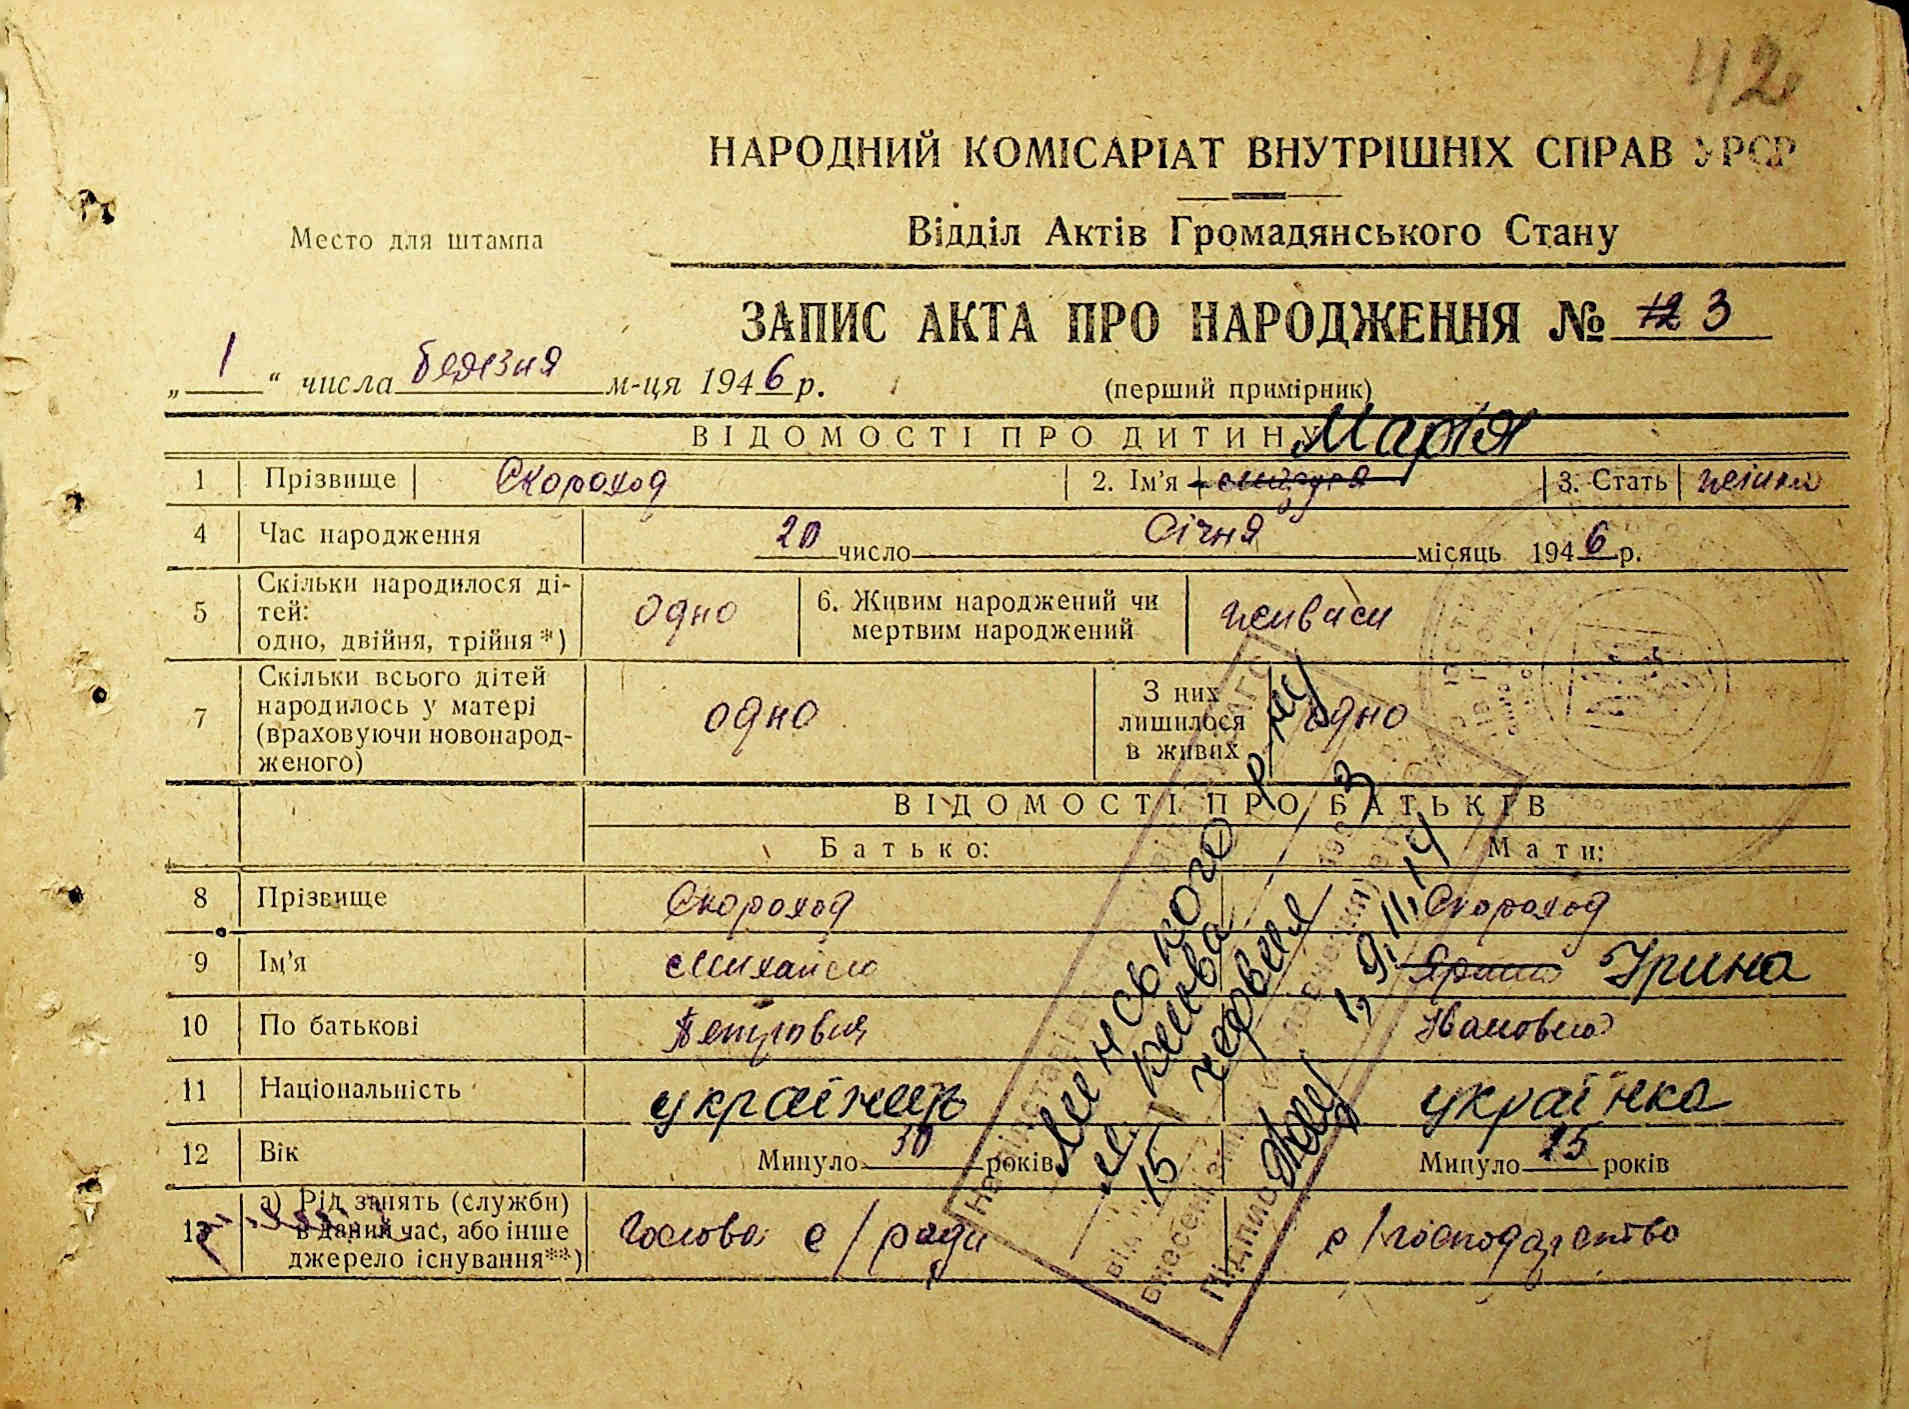 42
НАРОДНИЙ КОМІСАРІАТ ВНУТРІШНІХ СПРАВ УРСР
Место для штампа
Відділ Актів Громадянського Стану
ЗАПИС АКТА ПРО НАРОДЖЕННЯ № 12 3
„ 1 “ числа березня м-ця 1946 р.
(перший примірник)
ВІДОМОСТІ ПРО ДИТИНУ Марія
1 Прізвище Скороход 2. Ім'я 3. Стать
4 Час народження 20 число Січня місяць 1946 р.
5 Скільки народилося ді-
тей:
одно, двійня, трійня *) одно 6. Живим народжений чи
мертвим народжений живим
7 Скільки всього дітей
народилось у матері
(враховуючи новонарод-
женого) одно З них
лишилося
в живих одно
ВІДОМОСТІ ПРО БАТЬКІВ
Батько: Мати:
8 Прізвище Скороход Скороход
9 Ім'я Михайло Ірина
10 По батькові Петрович Івановна
11 Національність українець українка
12 Вік Минуло 30 років Минуло 25 років
13 а) Рід занять (служби)
в даний час, або інше
джерело існування**) Голова с/ради с/господарство
На підставі
Менського р-ну
від 15 червня
внесені зміни
Підпис